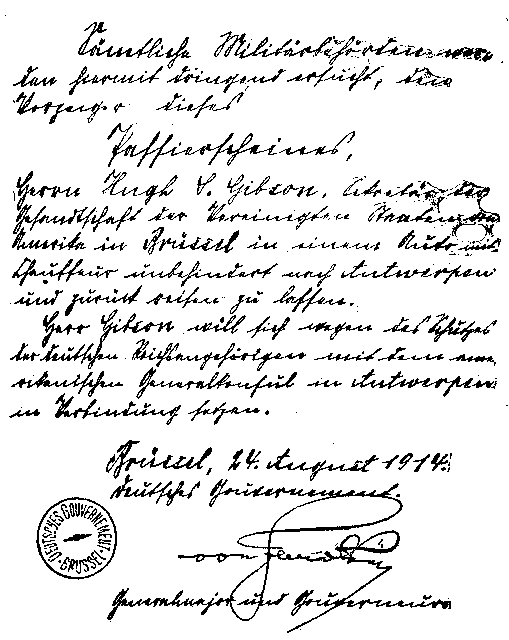 Sämtliche Militärbehörden wer-
den hiermit dringend ersucht, dem
Vorzeiger dieses
Passierscheines,
Herrn Hugh S. Gibson, Sekretär der
Gesandtschaft der Vereinigten Staaten von
Amerika in Brüssel in einem Auto mit
Chauffeur unbehindert nach Antwerpen
und zurück reisen zu lassen.
Herr Gibson will sich wegen des Schutzes
der deutschen Reichsangehörigen mit dem ame-
rikanischen Generalkonsul in Antwerpen
in Verbindung setzen.
Brüssel, 24. August 1914.
Deutsches Gouvernement.
DEUTSCHES GOUVERNEMENT
BRÜSSEL
von
Generalmajor und Gouverneur